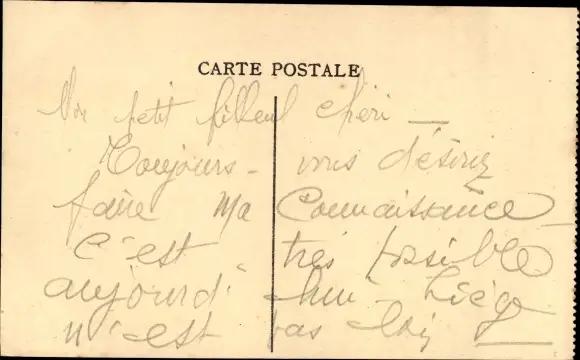 CARTE POSTALE
petit filleul chéri —
Toujours - vous désiriez
faire ma Connaissance -
C'est très possible
aujourd'hui - Liège
n'est pas loin